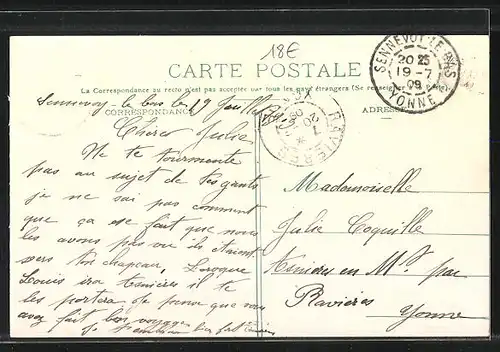 18€
CARTE POSTALE
La Correspondance au recto n'est pas acceptée par tous les pays étrangers (Se renseigner à la Poste)
CORRESPONDANCE
ADRESSE
SENNEVOY-LE-BAS
20 25
19 -7
09
YONNE
RAVIERES
20
7
09
Sennevoy-le bas le 19 Juillet 09
Chère Julie
Ne te tourmente
pas au sujet de tes gants
je ne sai pas comment
que ça ese fait que nous
les avons pas vu ils étaient
vers ton chapeau, Lorsque
Louis ira il te
les portera Je pense que vous
avez fait bon voyage
Je
Mademoiselle
Julie Coquille
en par
Ravières
Yonne